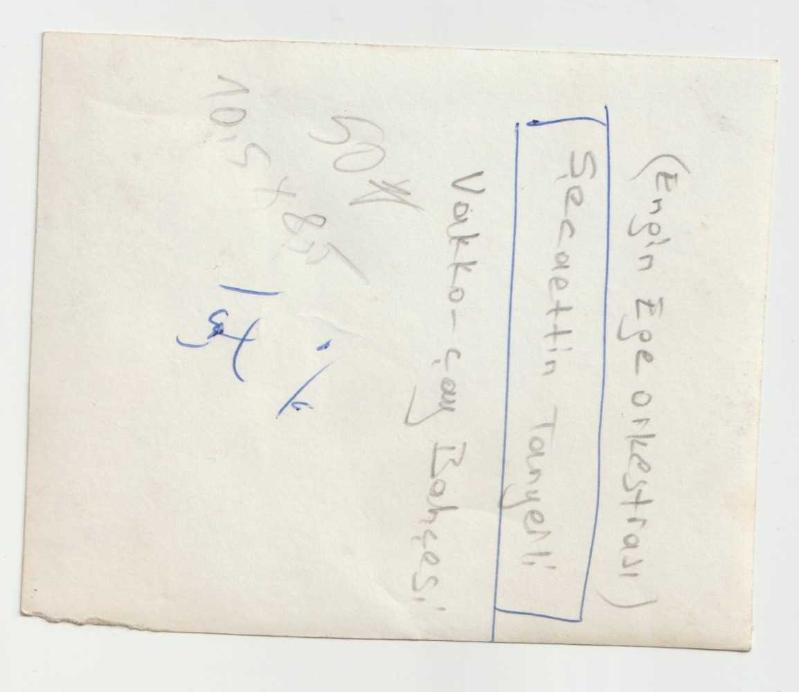 (Engin Ege orkestrası)
Şecaettin Tanyerli
Vakko-çay Bahçesi
10,5 x 8,5